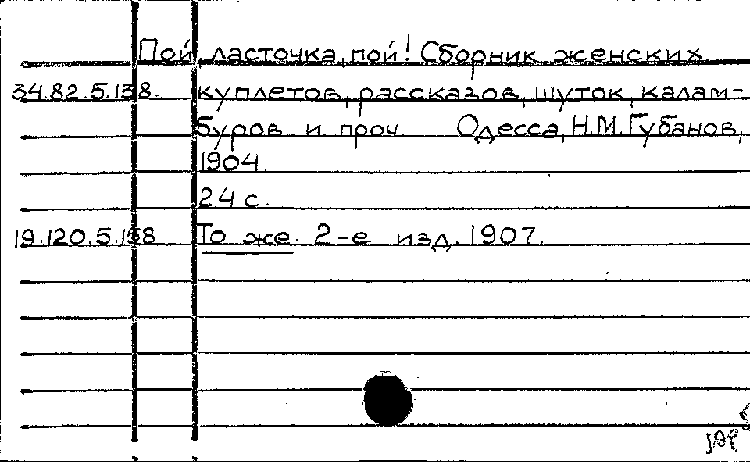 Пой ласточка, пой! Сборник женских
34.82.5.138. куплетов, рассказов, шуток, калам-
буров и проч Одесса, Н.М.Губанов,
1904.
24 с.
19.120.5.138 То же. 2-е изд. 1907.